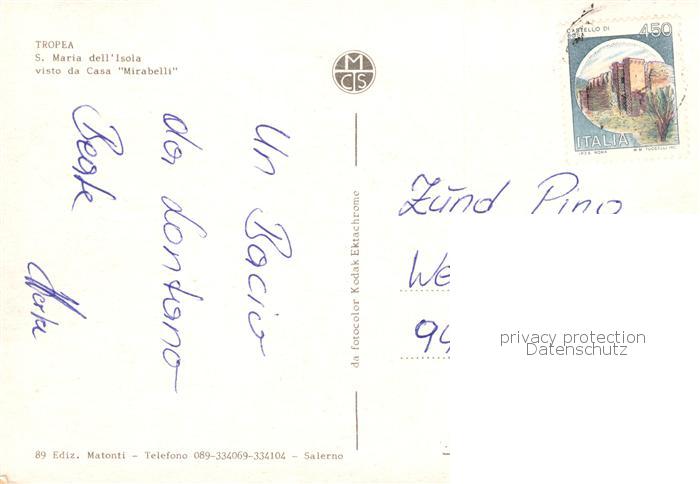 TROPEA
S. Maria dell'Isola
visto da Casa "Mirabelli"
M
C S
CASTELLO DI
450
ITALIA
I.P.Z.S. ROMA
M.M. TUCCELLI INC.
Un Bacio
da lontano
da fotocolor Kodak Ektachrome
Zünd Pino
We
94
privacy protection
Datenschutz
89 Ediz. Matonti - Telefono 089-334069-334104 - Salerno